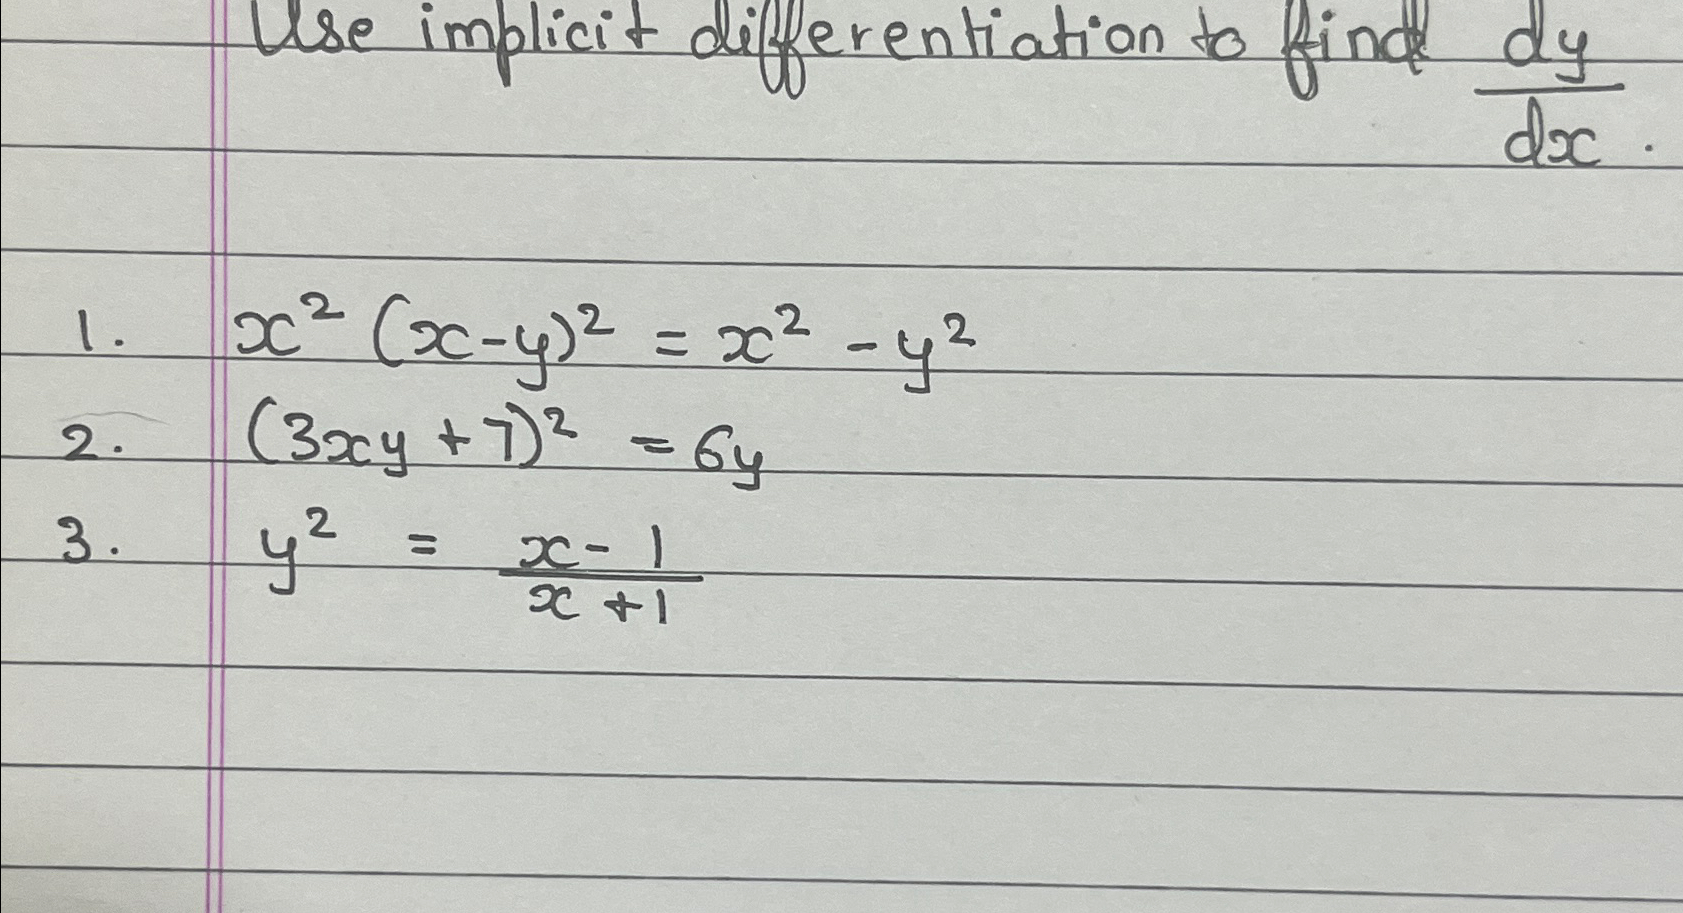 Use implicit differentiation to find dy/dx.
1. x² (x-y)² = x² - y²
2. (3xy + 7)² = 6y
3. y² = x - 1 / x + 1